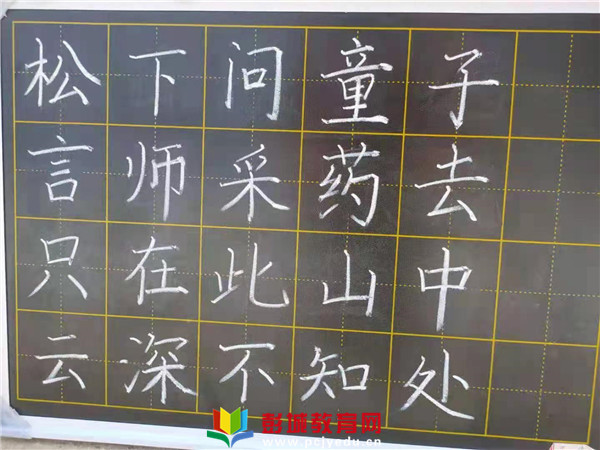 松下问童子
言师采药去
只在此山中
云深不知处
彭城教育网
www.pcjyedu.cn